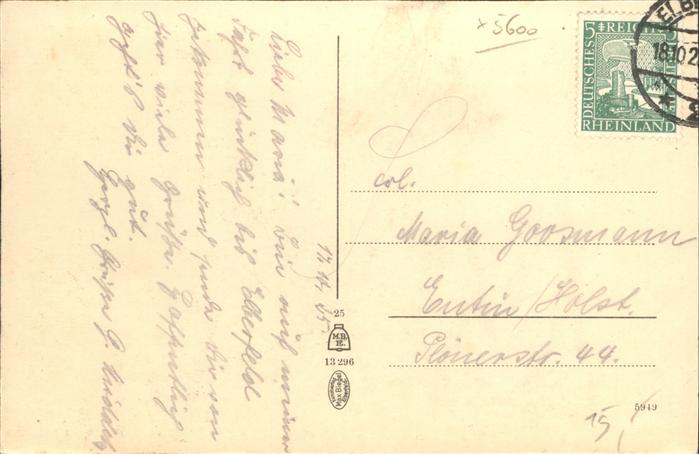 × 5600
DEUTSCHES REICH
5
RHEINLAND
ELB
18.10.2
17.10.25
Liebe Maria! Bin auf meiner
Fahrt glücklich bis Elberfeld
gekommen und sende dir von
hier viele Grüße. Hoffentlich
geht's dir gut.
Herzl. Grüße
Maria Goosmann
Eutin/Holst.
Plönerstr. 44.
25
M.B.
E.
13296
Max Biegel
5949
15,